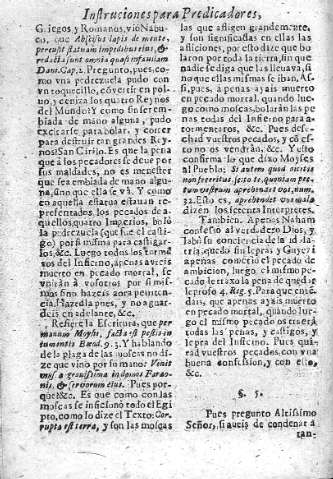 Instruciones para Predicadores,
Griegos y Romanos, vio Nabu-
co, que Abscisus lapis de monte
percussit statuam in pedibus eius, &
redacta sunt omnia quasi in fauillam
Dan. Cap. 2. Pregunto, pues, co-
mo vna pedrezuela pudo con
vn toquezillo, côvertir en pol-
uo, y ceniza los quatro Reynos
del Mundo? Y como sin ser em-
biada de mano alguna, pudo
para bolar, y correr
para destruir tan grandes Rey-
nos? San Cirilo. Es que la pena
que a los pecadores se deue por
sus maldades, no es menester
que sea embiada de mano algu-
na, sino que ella se và. Y como
en aquella estatua estauan re-
presentados los pecados de a-
quellos quatro Imperios, bolò
la pedrezuela (que fue el casti-
go) por si misma para castigar-
los, &c. Luego todos los tormê-
tos del Infierno, apenas aureis
muerto en pecado mortal, se
vendràn à vosotros por si mis-
mos sino hazeis aora peniten-
cia. Hazedla pues, y no aguar-
deis en adelante, &c.
Refiere la Escritura, que per
manum Moysi, facta est pestis in
iumentis Exod. 9. 3. y hablando
de la plaga de las moscas no di-
ze que vino por su mano: Venit
musca grauissima in domos Farao-
nis, & seruorum eius. Pues por-
què &c. Es que como con las
moscas se inficionò todo el Egi-
pto, como lo dize el Texto: Cor-
rupta est terra, y son las moscas
las que afligen grandemente,
y son significadas en ellas las
afliciones, por esto dize que bo-
laron por toda la tierra, sin que
nadie se diga que las lleuaua, si
no que ellas mismas se iban. As-
si, pues, à penas ayais muerto
en pecado mortal, quando lue-
go como moscas, bolaràn las pe-
nas todas del Infierno para a-
tormentaros, &c. Pues desse-
chad vuestros pecados, y si es-
to no es vendràn, &c. Y esto
confirma lo que dixo Moyses
al Pueblo: Si autem quod dicitis
non feceritis, scito te, quoniam pec-
catum vestrum aprehendet vos, num.
32. Esto es, aprehendent vos mala
dizen los setenta Interpretes.
Tambien. Apenas Naham
confessò al verdadero Dios, y
labò su conciencia de la idola-
tria, quedò sin lepra: y Gayezi
apenas cometiò el pecado de
ambicion, luego el mismo pe-
cado le traxo la pena de que de
leprosò 4. Reg. 5. Para que enten-
dais, que apenas ayais muerto
en pecado mortal, quando lue-
go el mismo pecado os traerà
todas las penas, y castigos, y
lepra del Infierno. Pues qui-
tad vuestros pecados, con vna
buena confession, y con esto,
&c.
§. 5.
Pues pregunto Altissimo
Señor, si aueis de condenar à
tan-